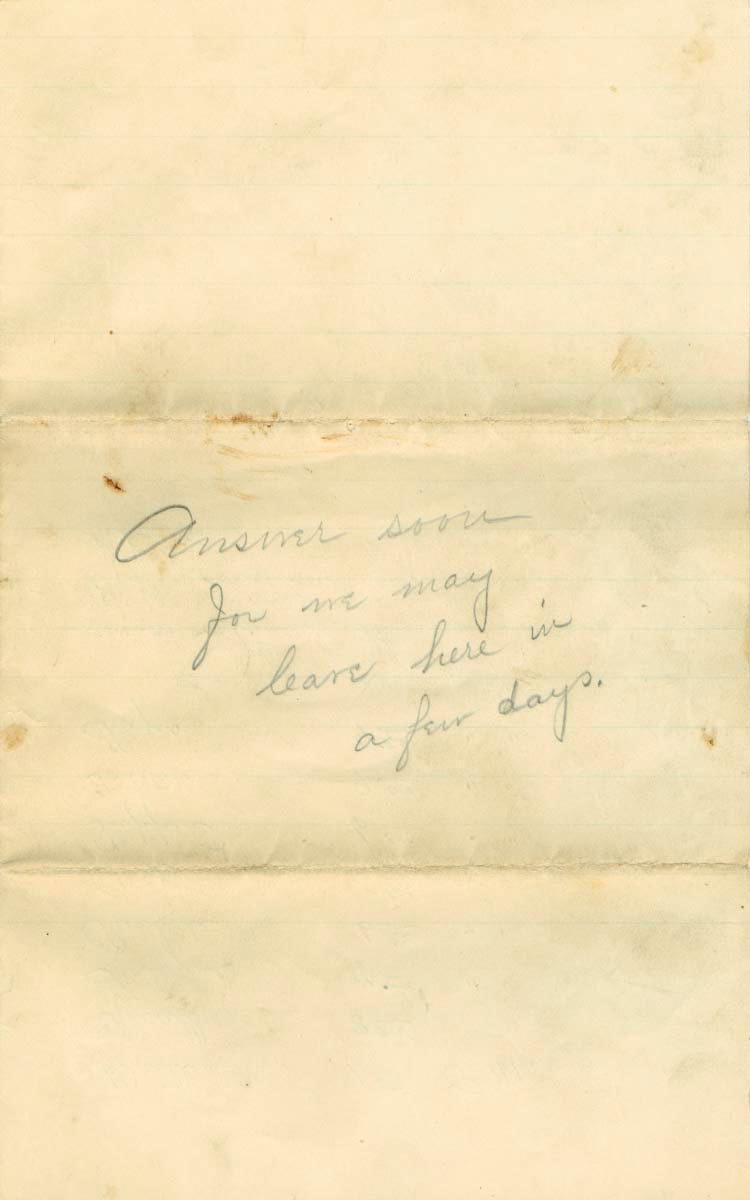 Answer soon
for we may
leave here in
a few days.